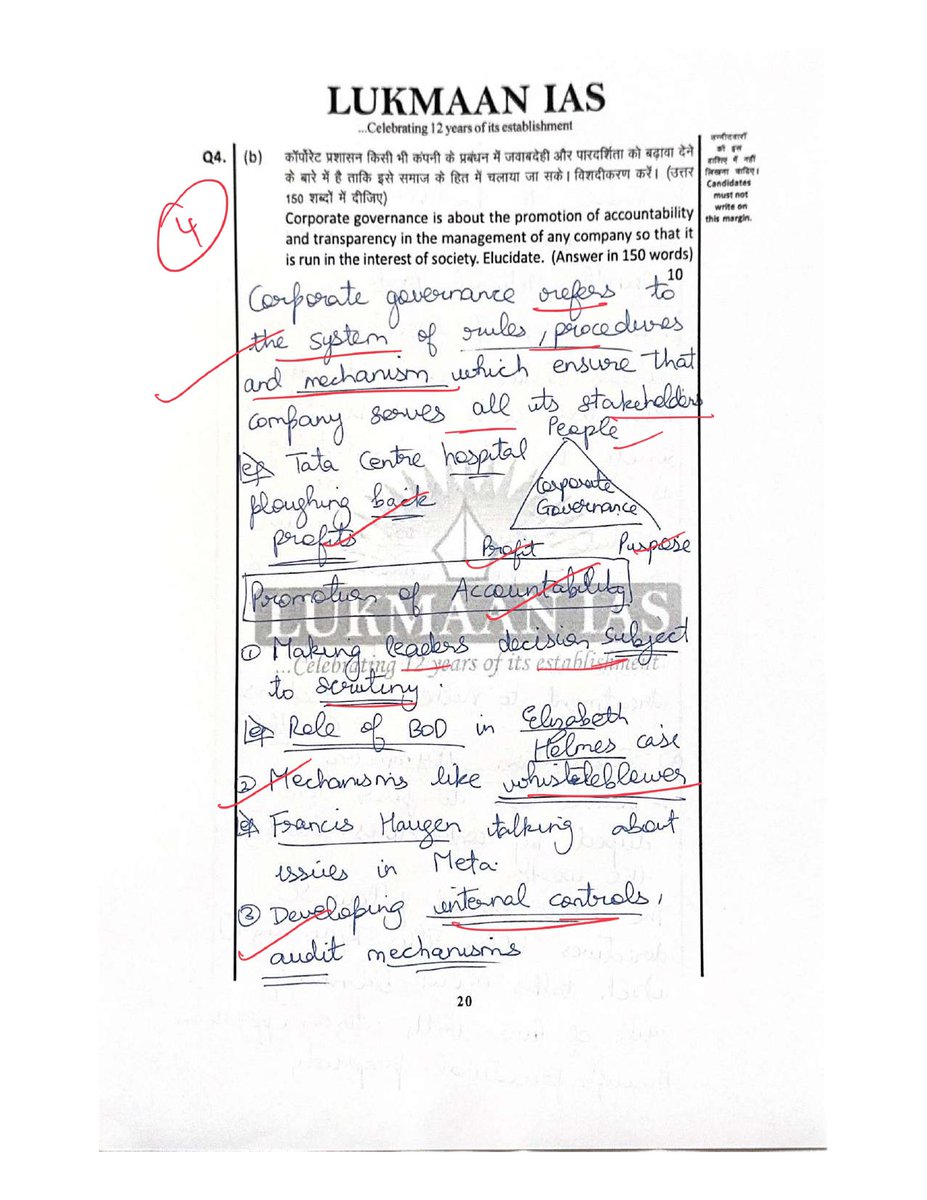 LUKMAAN IAS
...Celebrating 12 years of its establishment
Q4. (b) कॉर्पोरेट प्रशासन किसी भी कंपनी के प्रबंधन में जवाबदेही और पारदर्शिता को बढ़ावा देने
के बारे में है ताकि इसे समाज के हित में चलाया जा सके। विशदीकरण करें। (उत्तर
150 शब्दों में दीजिए)
Corporate governance is about the promotion of accountability
and transparency in the management of any company so that it
is run in the interest of society. Elucidate. (Answer in 150 words)
10
उम्मीदवारों
को इस
हाशिए में नहीं
लिखना चाहिए।
Candidates
must not
write on
this margin.
4
Corporate governance refers to
the system of rules, procedures
and mechanism which ensure that
company serves all its stakeholders
eg Tata Centre hospital
ploughing back
profits
People
Corporate
Governance
Profit Puspose
Promotion of Accountability
LUKMAAN IAS
① Making leaders decision subject
...Celebrating 12 years of its establishment
to scrutiny.
eg Role of BOD in Elizabeth
Helmes case
② Mechanisms like whistleblower
eg Francis Haugen talking about
issues in Meta.
③ Developing internal controls,
audit mechanisms
20